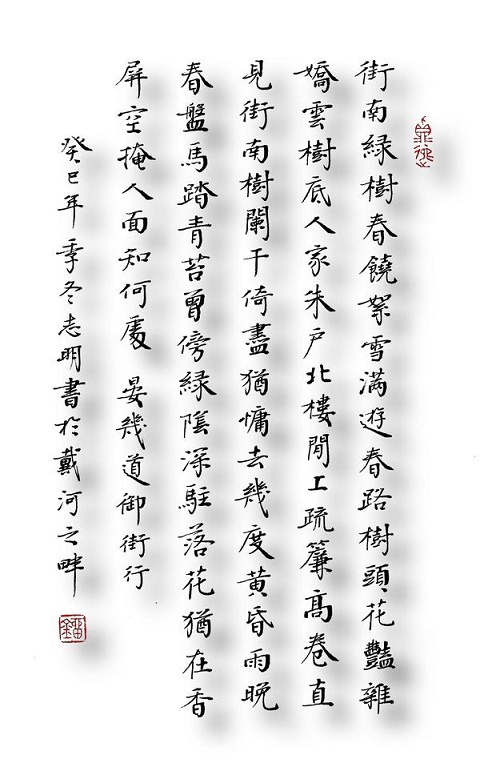 街南緑樹春饒絮雪滿遊春路樹頭花豔雜
嬌雲樹底人家朱户北樓閒上疏簾髙卷直
見街南樹闌干倚盡猶慵去幾度黄昏雨晚
春盤馬踏青苔曾傍緑陰深駐落花猶在香
屏空掩人面知何處 晏幾道御街行
癸巳年季冬志明書於戴河之畔